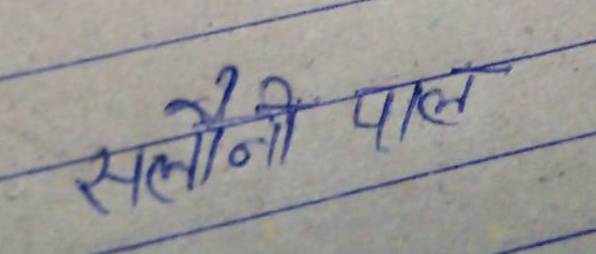 सलौनी पाल